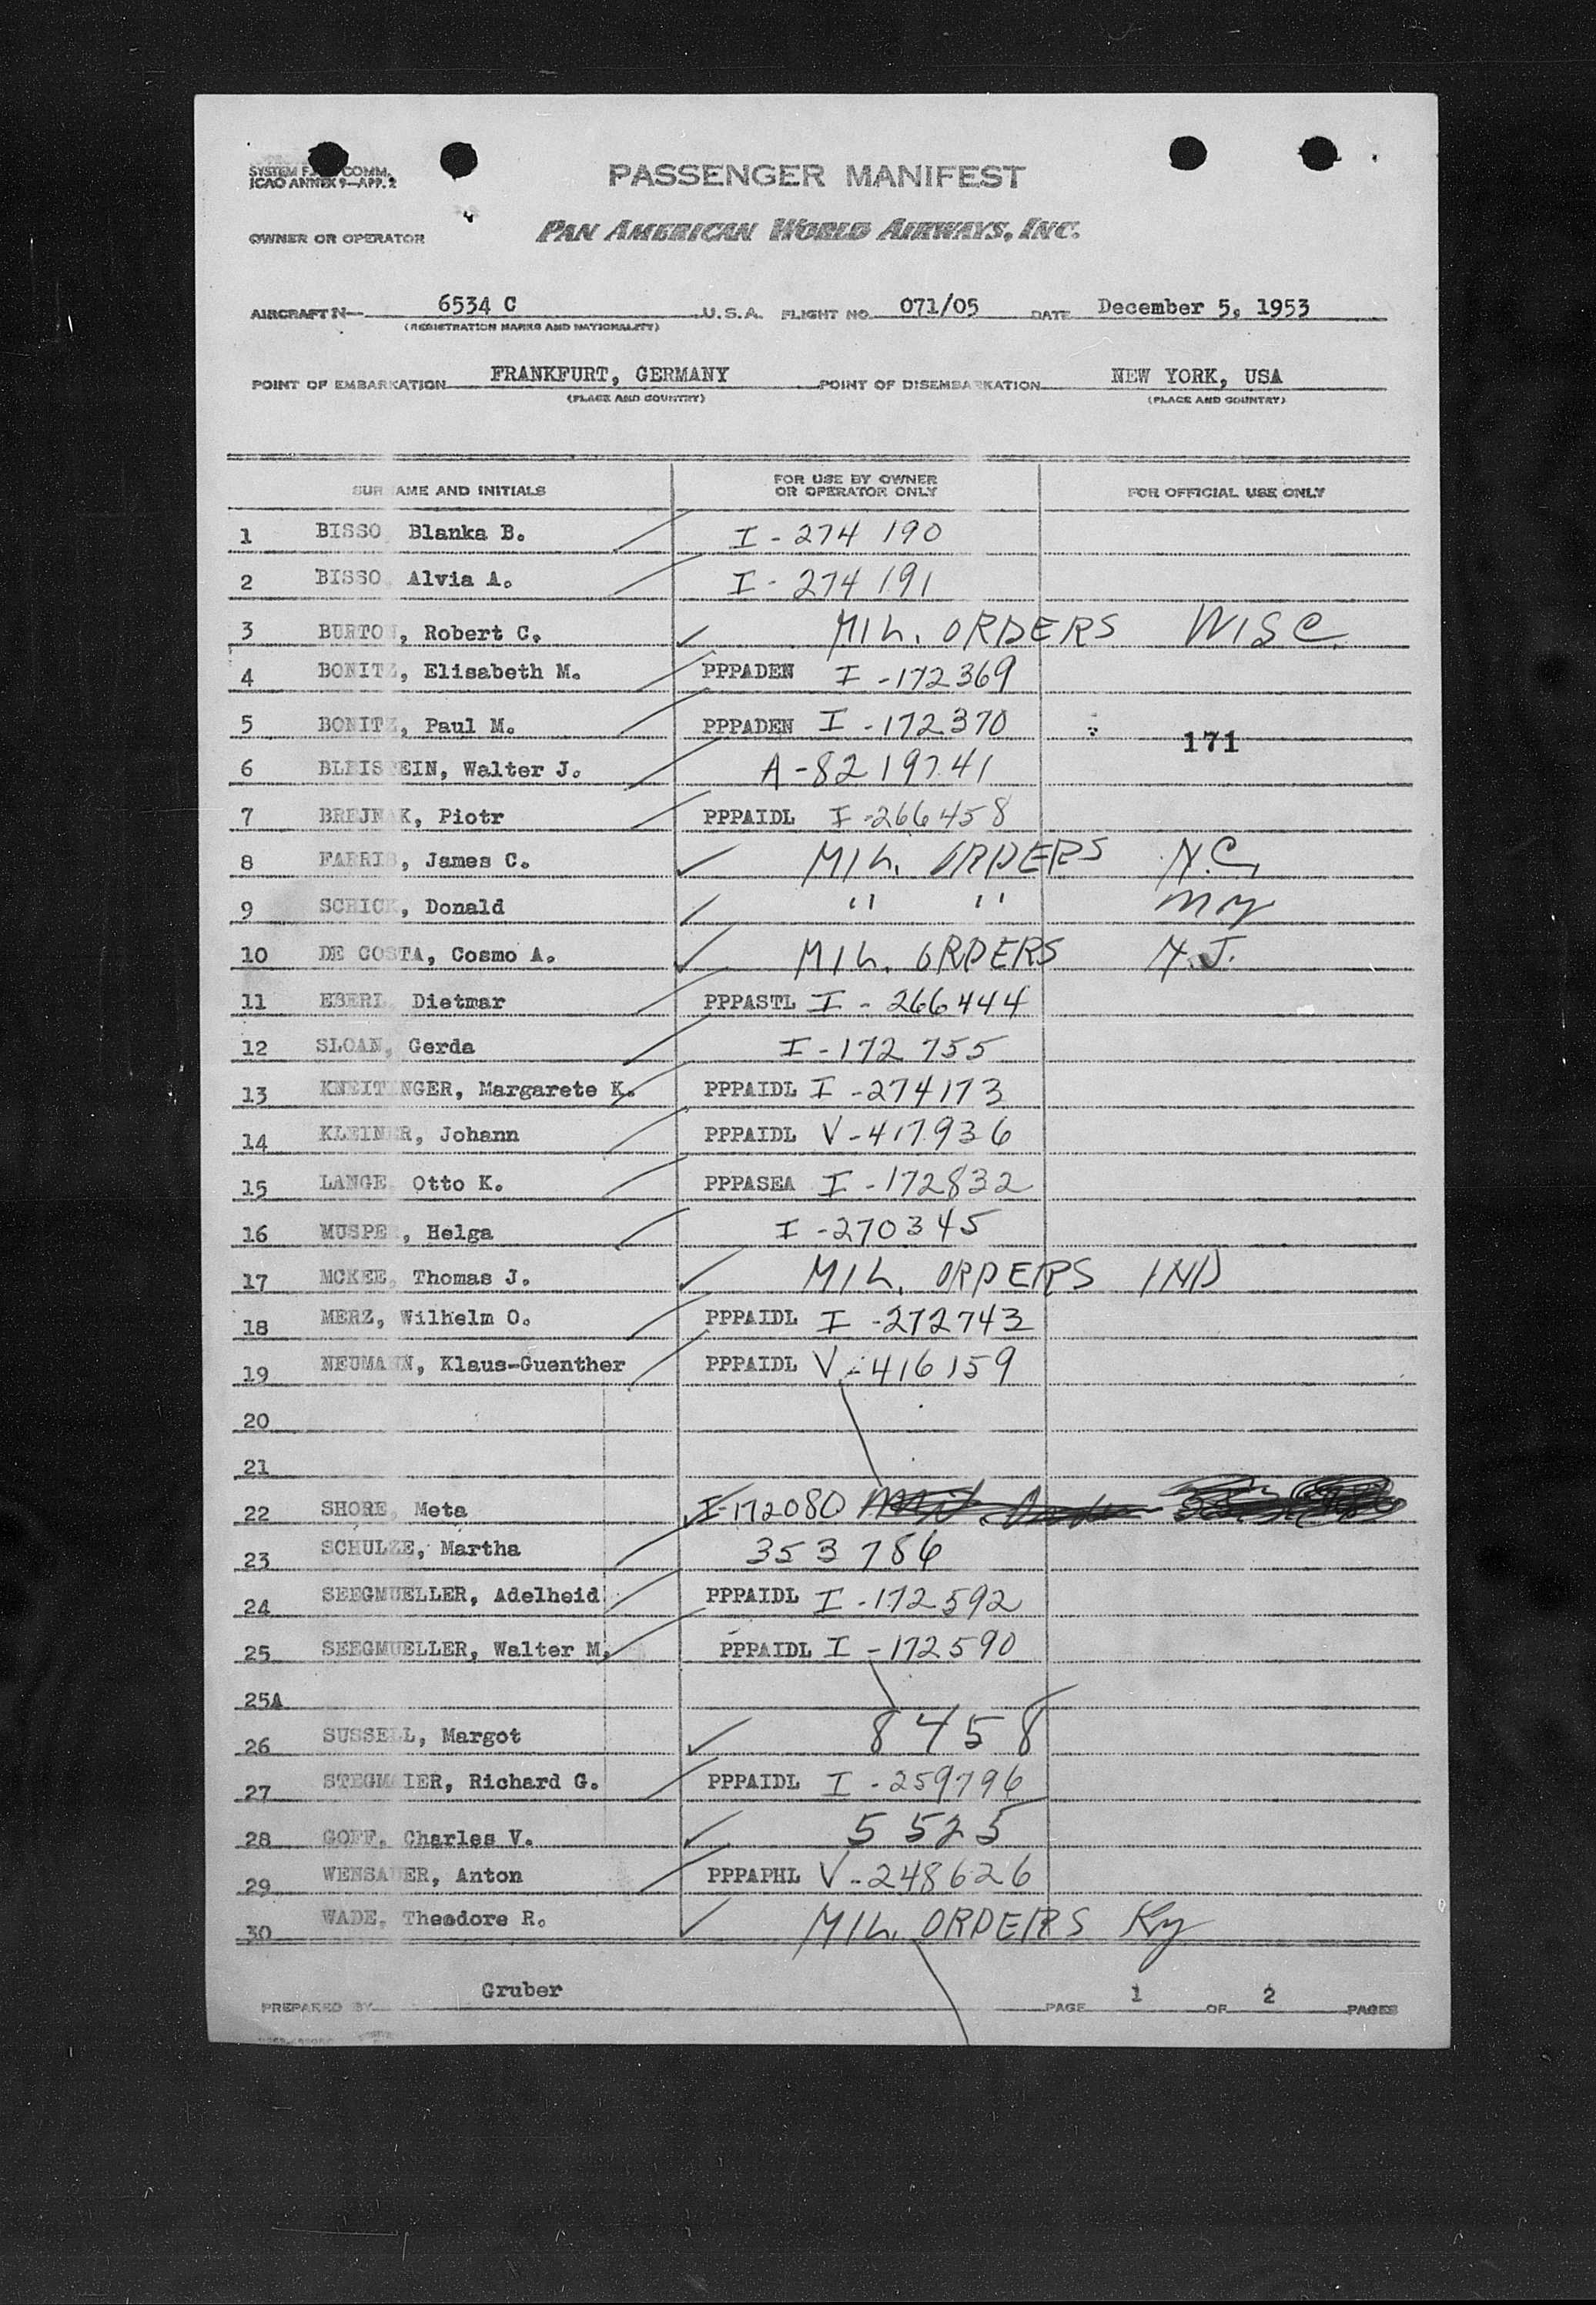 SYSTEM F COMM.
ICAO ANNEX 9—APP. 2
PASSENGER MANIFEST
OWNER OR OPERATOR PAN AMERICAN WORLD AIRWAYS, INC.
AIRCRAFT N— 6534 C U.S.A. FLIGHT NO. 071/05 DATE December 5, 1953
(REGISTRATION MARKS AND NATIONALITY)
POINT OF EMBARKATION FRANKFURT, GERMANY POINT OF DISEMBARKATION NEW YORK, USA
(PLACE AND COUNTRY) (PLACE AND COUNTRY)
SURNAME AND INITIALS FOR USE BY OWNER OR OPERATOR ONLY FOR OFFICIAL USE ONLY
1 BISSO Blanka B. I - 274 190
2 BISSO, Alvia A. I - 274 191
3 BURTON, Robert C. MIL. ORDERS WISC.
4 BONITZ, Elisabeth M. PPPADEN I - 172369
5 BONITZ, Paul M. PPPADEN I - 172370
171
6 BLEISTEIN, Walter J. A - 8219741
7 BREJNAK, Piotr PPPAIDL I - 266458
8 FARRIS, James C. MIL. ORDERS N.C.
9 SCHICK, Donald " "
10 DE COSTA, Cosmo A. MIL. ORDERS N.J.
11 EBERL, Dietmar PPPASTL I - 266444
12 SLOAN, Gerda I - 172 755
13 KNEITINGER, Margarete K. PPPAIDL I - 274173
14 KLEINER, Johann PPPAIDL V - 417936
15 LANGE, Otto K. PPPASEA I - 172832
16 MUSPE , Helga I - 270345
17 MCKEE, Thomas J. MIL. ORDERS IND
18 MERZ, Wilhelm O. PPPAIDL I - 272743
19 NEUMANN, Klaus-Guenther PPPAIDL V - 416159
20
21
22 SHORE, Meta I-172080
23 SCHULZE, Martha 353 786
24 SEEGMUELLER, Adelheid PPPAIDL I - 172592
25 SEEGMUELLER, Walter M. PPPAIDL I - 172590
25A
26 SUSSELL, Margot 8458
27 STEGMAIER, Richard G. PPPAIDL I - 259796
28 GOFF, Charles V. 5525
29 WENSAUER, Anton PPPAPHL V - 248626
30 WADE, Theodore R. MIL. ORDERS Ky
PREPARED BY Gruber PAGE 1 OF 2 PAGES